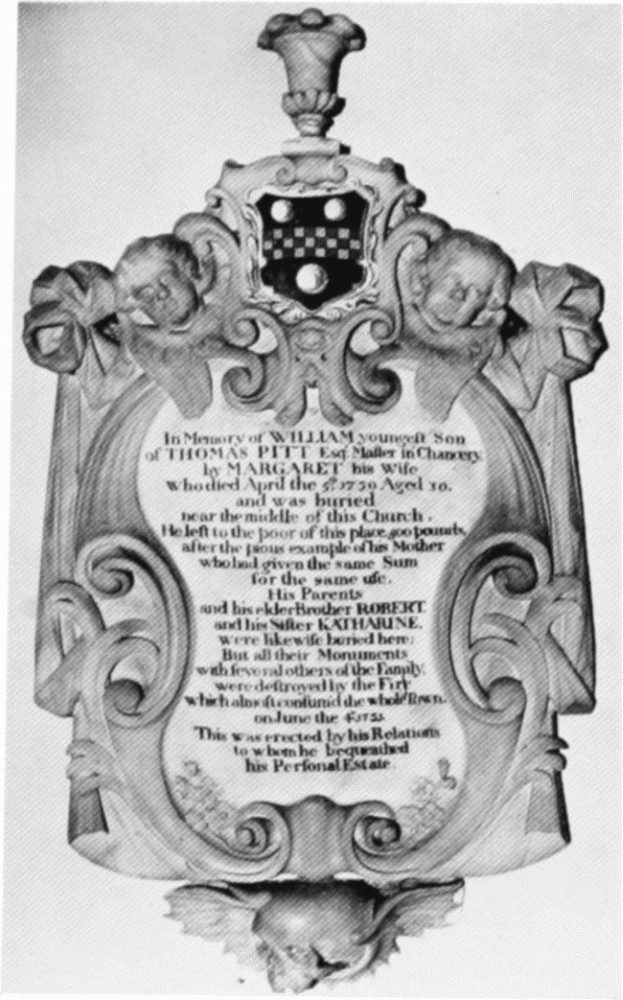 In Memory of WILLIAM youngeſt Son
of THOMAS PITT Esq. Maſter in Chancery
by MARGARET his Wife
who died April the 5th 1730 Aged
and was buried
near the middle of this Church.
He left to the poor of this place, 300 pounds,
after the pious example of his Mother
who had given the same Sum
for the same uſe.
His Parents
and his elder Brother ROBERT.
and his Siſter KATHARINE.
were likewiſe buried here;
But all their Monuments
with ſeveral others of the Family.
were deſtroyed by the Fire
which almoſt conſum'd the whole Town.
on June the
This was erected by his Relations
to whom he bequeathed
his Perſonal Estate.